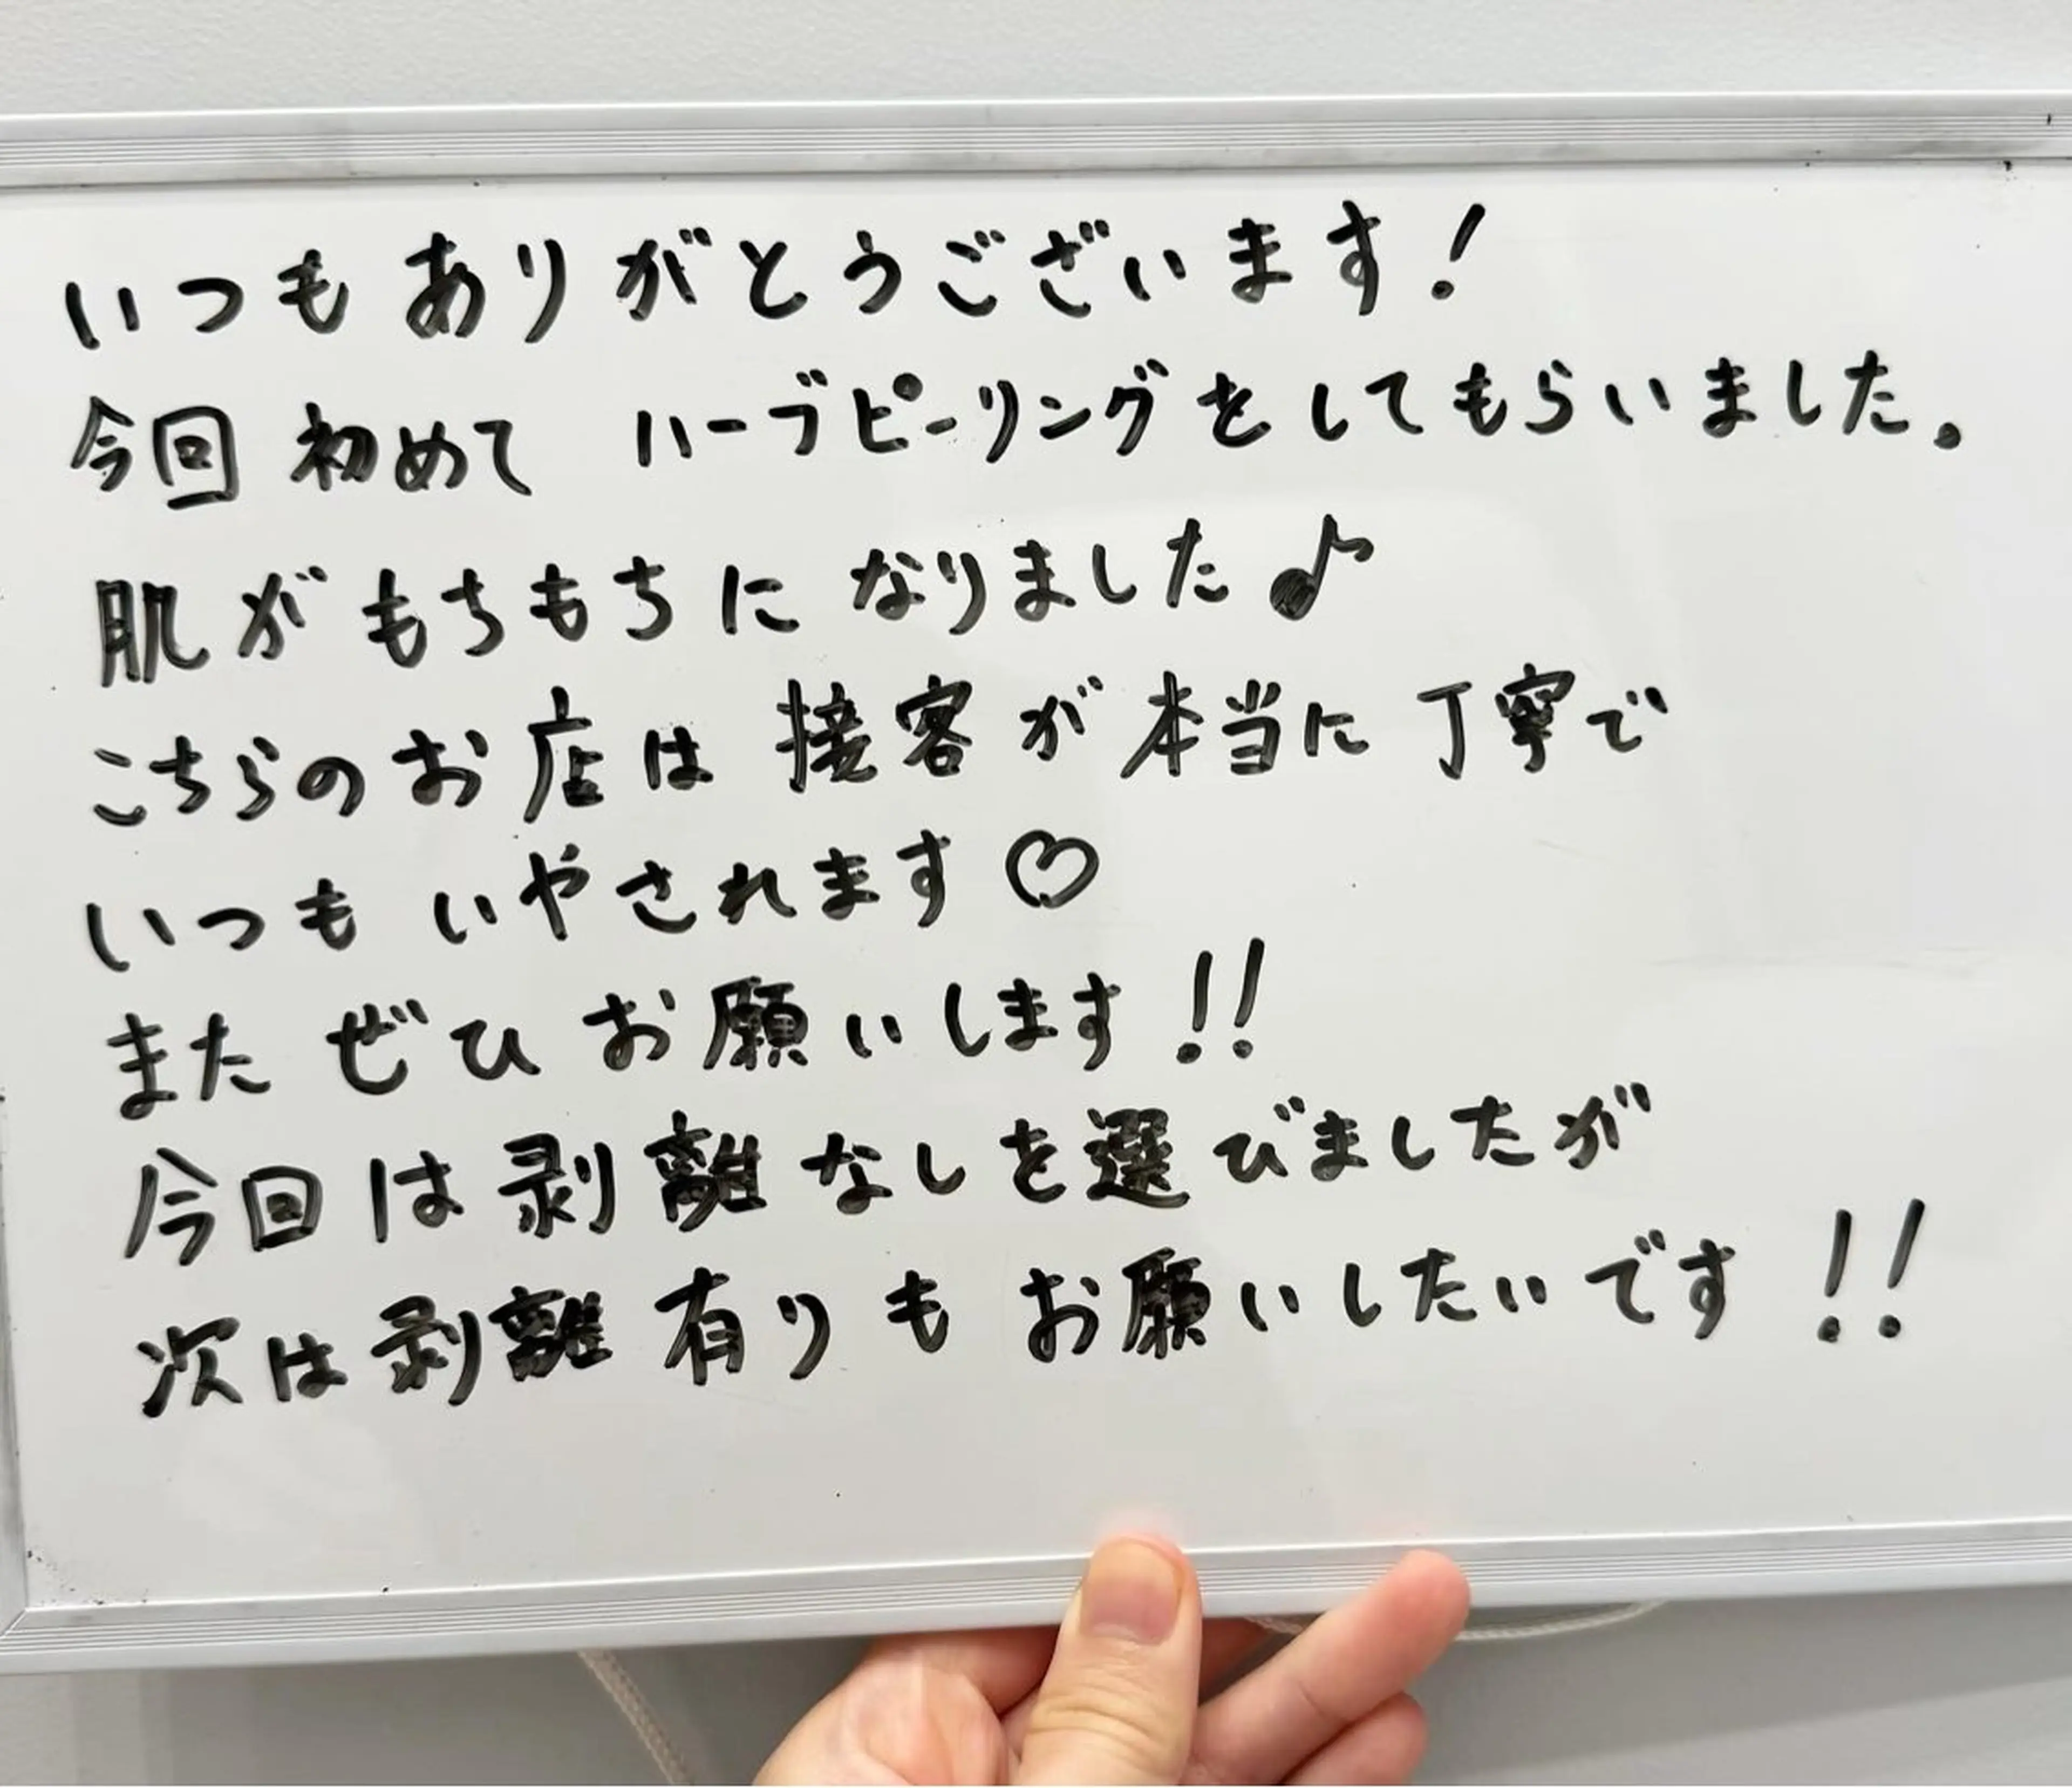 いつもありがとうございます!
今回初めて ハーブピーリングをしてもらいました。
肌がもちもちになりました♪
こちらのお店は接客が本当に丁寧で
いつもいやされます♡
またぜひお願いします!!
今回は剥離なしを選びましたが
次は剥離有りもお願いしたいです!!